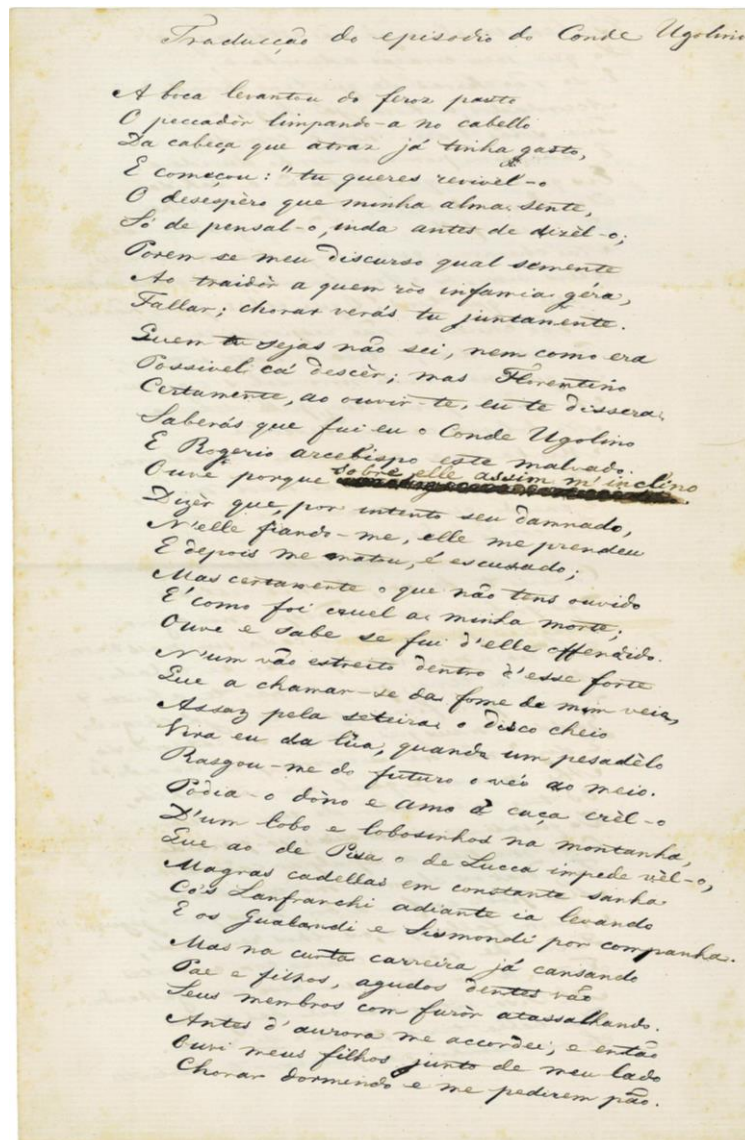 Traducção do episodio do Conde Ugolino
A boca levantou do feroz pasto
O peccadòr limpando-a no cabello
Da cabeça que atraz já tinha gasto,
E começou: "tu queres revivêl-o
O desespèro que minha alma sente,
Só de pensal-o, inda antes de dizèl-o;
Porem se meu discurso qual semente
Ao traidòr a quem rôo infamia géra,
Fallar; chorar verás tu juntamente.
Quem tu sejas não sei, nem como era
Possivel cá descèr; mas Florentino
Certamente, ao ouvir-te, eu te dissera.
Saberás que fui eu o Conde Ugolino
E Rogerio arcebispo este malvado.
Ouve porque sobre elle assim m'inclino
Dizèr que, por intento seu damnado,
N'elle fiando-me, elle me prendeu
E depois me matou, é escusado;
Mas certamente o que não tens ouvido
E' como foi cruel a minha morte;
Ouve e sabe se fui d'elle offendido.
N'um vão estreito dentro d'esse forte
Que a chamar-se da fome de mim veio,
Assaz pela seteira o disco cheio
Vira eu da lũa, quando um pesadèlo
Rasgou-me do futuro o véo ao meio.
Pódia-o dòno e amo à caça crèl-o
D'um lobo e lobosinhos na montanha,
Que ao de Pisa o de Lucca impede vèl-o,
Magras cadellas em constante sanha
Co's Lanfranchi adiante ia levando
E os Gualandi e Sismondi por companha.
Mas na curta carreira já cansando
Pae e filhos, agudos dentes vão
Seus membros com furòr atassalhando.
Antes d'aurora me accordei, e então
Ouvi meus filhos junto de meu lado
Chorar dormindo e me pedirem pão.